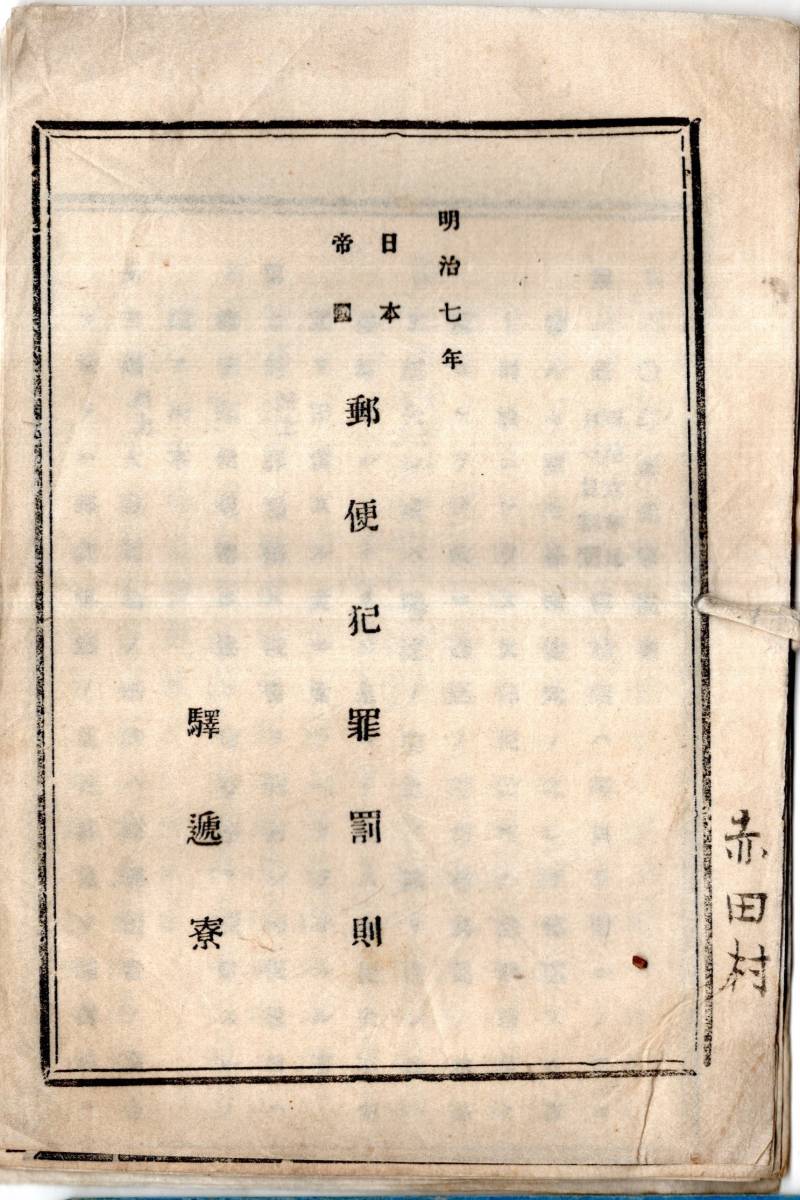 明治七年
日本
帝國
郵便犯罪罰則
驛遞寮
赤田村